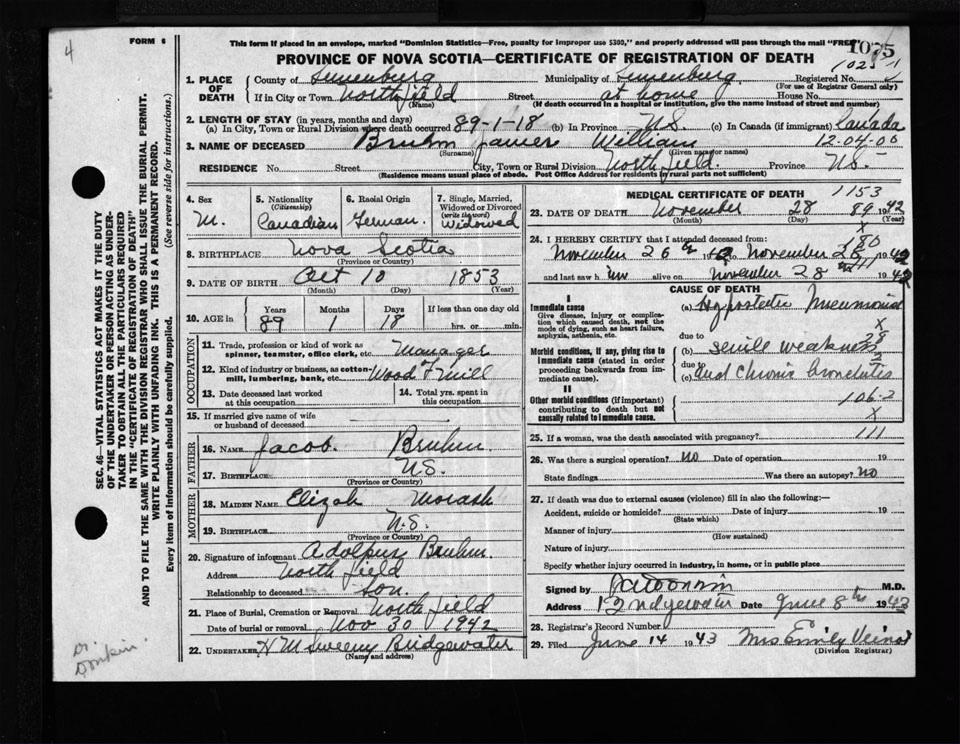 4
FORM 6
This form if placed in an envelope, marked "Dominion Statistics—Free, penalty for improper use $300," and properly addressed will pass through the mail "FREE"
1075
PROVINCE OF NOVA SCOTIA—CERTIFICATE OF REGISTRATION OF DEATH
1025
1. PLACE OF DEATH County of Lunenburg Municipality of Lunenburg Registered No.
(For use of Registrar General only)
If in City or Town Northfield Street at home House No.
(Name) (If death occurred in a hospital or institution, give the name instead of street and number)
2. LENGTH OF STAY (in years, months and days)
(a) In City, Town or Rural Division where death occurred 89-1-18 (b) In Province N.S. (c) In Canada (if immigrant) Canada
3. NAME OF DECEASED Bruhm James William 12-04-06
(Surname) (Given name or names)
RESIDENCE No. Street City, Town or Rural Division Northfield. Province N.S.
(Residence means usual place of abode. Post Office Address for residents in rural parts not sufficient)
4. Sex M.
5. Nationality (Citizenship) Canadian
6. Racial Origin German.
7. Single, Married, Widowed or Divorced (write the word) Widowed
8. BIRTHPLACE Nova Scotia
(Province or Country)
9. DATE OF BIRTH Oct 10 1853
(Month) (Day) (Year)
10. AGE in Years 89 Months 1 Days 18 If less than one day old hrs. or min.
OCCUPATION
11. Trade, profession or kind of work as spinner, teamster, office clerk, etc. Manager
12. Kind of industry or business, as cotton mill, lumbering, bank, etc. Wood & Mill
13. Date deceased last worked at this occupation
14. Total yrs. spent in this occupation
15. If married give name of wife or husband of deceased
FATHER
16. NAME Jacob. Bruhm.
17. BIRTHPLACE N.S.
(Province or Country)
MOTHER
18. MAIDEN NAME Elizah Morash
19. BIRTHPLACE N.S.
(Province or Country)
20. Signature of informant Adolpus Bruhm.
Address North field
Relationship to deceased son.
21. Place of Burial, Cremation or Removal North field
Date of burial or removal Nov 30 1942
22. UNDERTAKER H M Sweeny Bridgewater
(Name and address)
MEDICAL CERTIFICATE OF DEATH 1153
23. DATE OF DEATH November 28 89 1942
(Month) (Day) (Year)
24. I HEREBY CERTIFY that I attended deceased from:
November 26th to November 28 1942
and last saw him alive on November 28 1942
CAUSE OF DEATH
I
Immediate cause
Give disease, injury or complication which caused death, not the mode of dying, such as heart failure, asphyxia, asthenia, etc.
(a) Hypostatic Pneumonia
due to
Morbid conditions, if any, giving rise to immediate cause (stated in order proceeding backwards from immediate cause).
(b) senile weakness
due to
(c) and Chronic bronchitis
II
Other morbid conditions (if important) contributing to death but not causally related to immediate cause.
106-2
X
25. If a woman, was the death associated with pregnancy? 111
26. Was there a surgical operation? No Date of operation 19
State findings Was there an autopsy? No
27. If death was due to external causes (violence) fill in also the following:—
Accident, suicide or homicide? Date of injury 19
(State which)
Manner of injury
(How sustained)
Nature of injury
Specify whether injury occurred in industry, in home, or in public place
Signed by M.D.
Address Bridgewater Date June 8th 1943
28. Registrar's Record Number
29. Filed June 14 1943 Mrs Emily Veinot
(Division Registrar)
SEC. 46—VITAL STATISTICS ACT MAKES IT THE DUTY OF THE UNDERTAKER OR PERSON ACTING AS UNDERTAKER TO OBTAIN ALL THE PARTICULARS REQUIRED IN THE "CERTIFICATE OF REGISTRATION OF DEATH" AND TO FILE THE SAME WITH THE DIVISION REGISTRAR WHO SHALL ISSUE THE BURIAL PERMIT.
WRITE PLAINLY WITH UNFADING INK. THIS IS A PERMANENT RECORD.
Every item of information should be carefully supplied. (See reverse side for instructions.)
Dr. Donkin